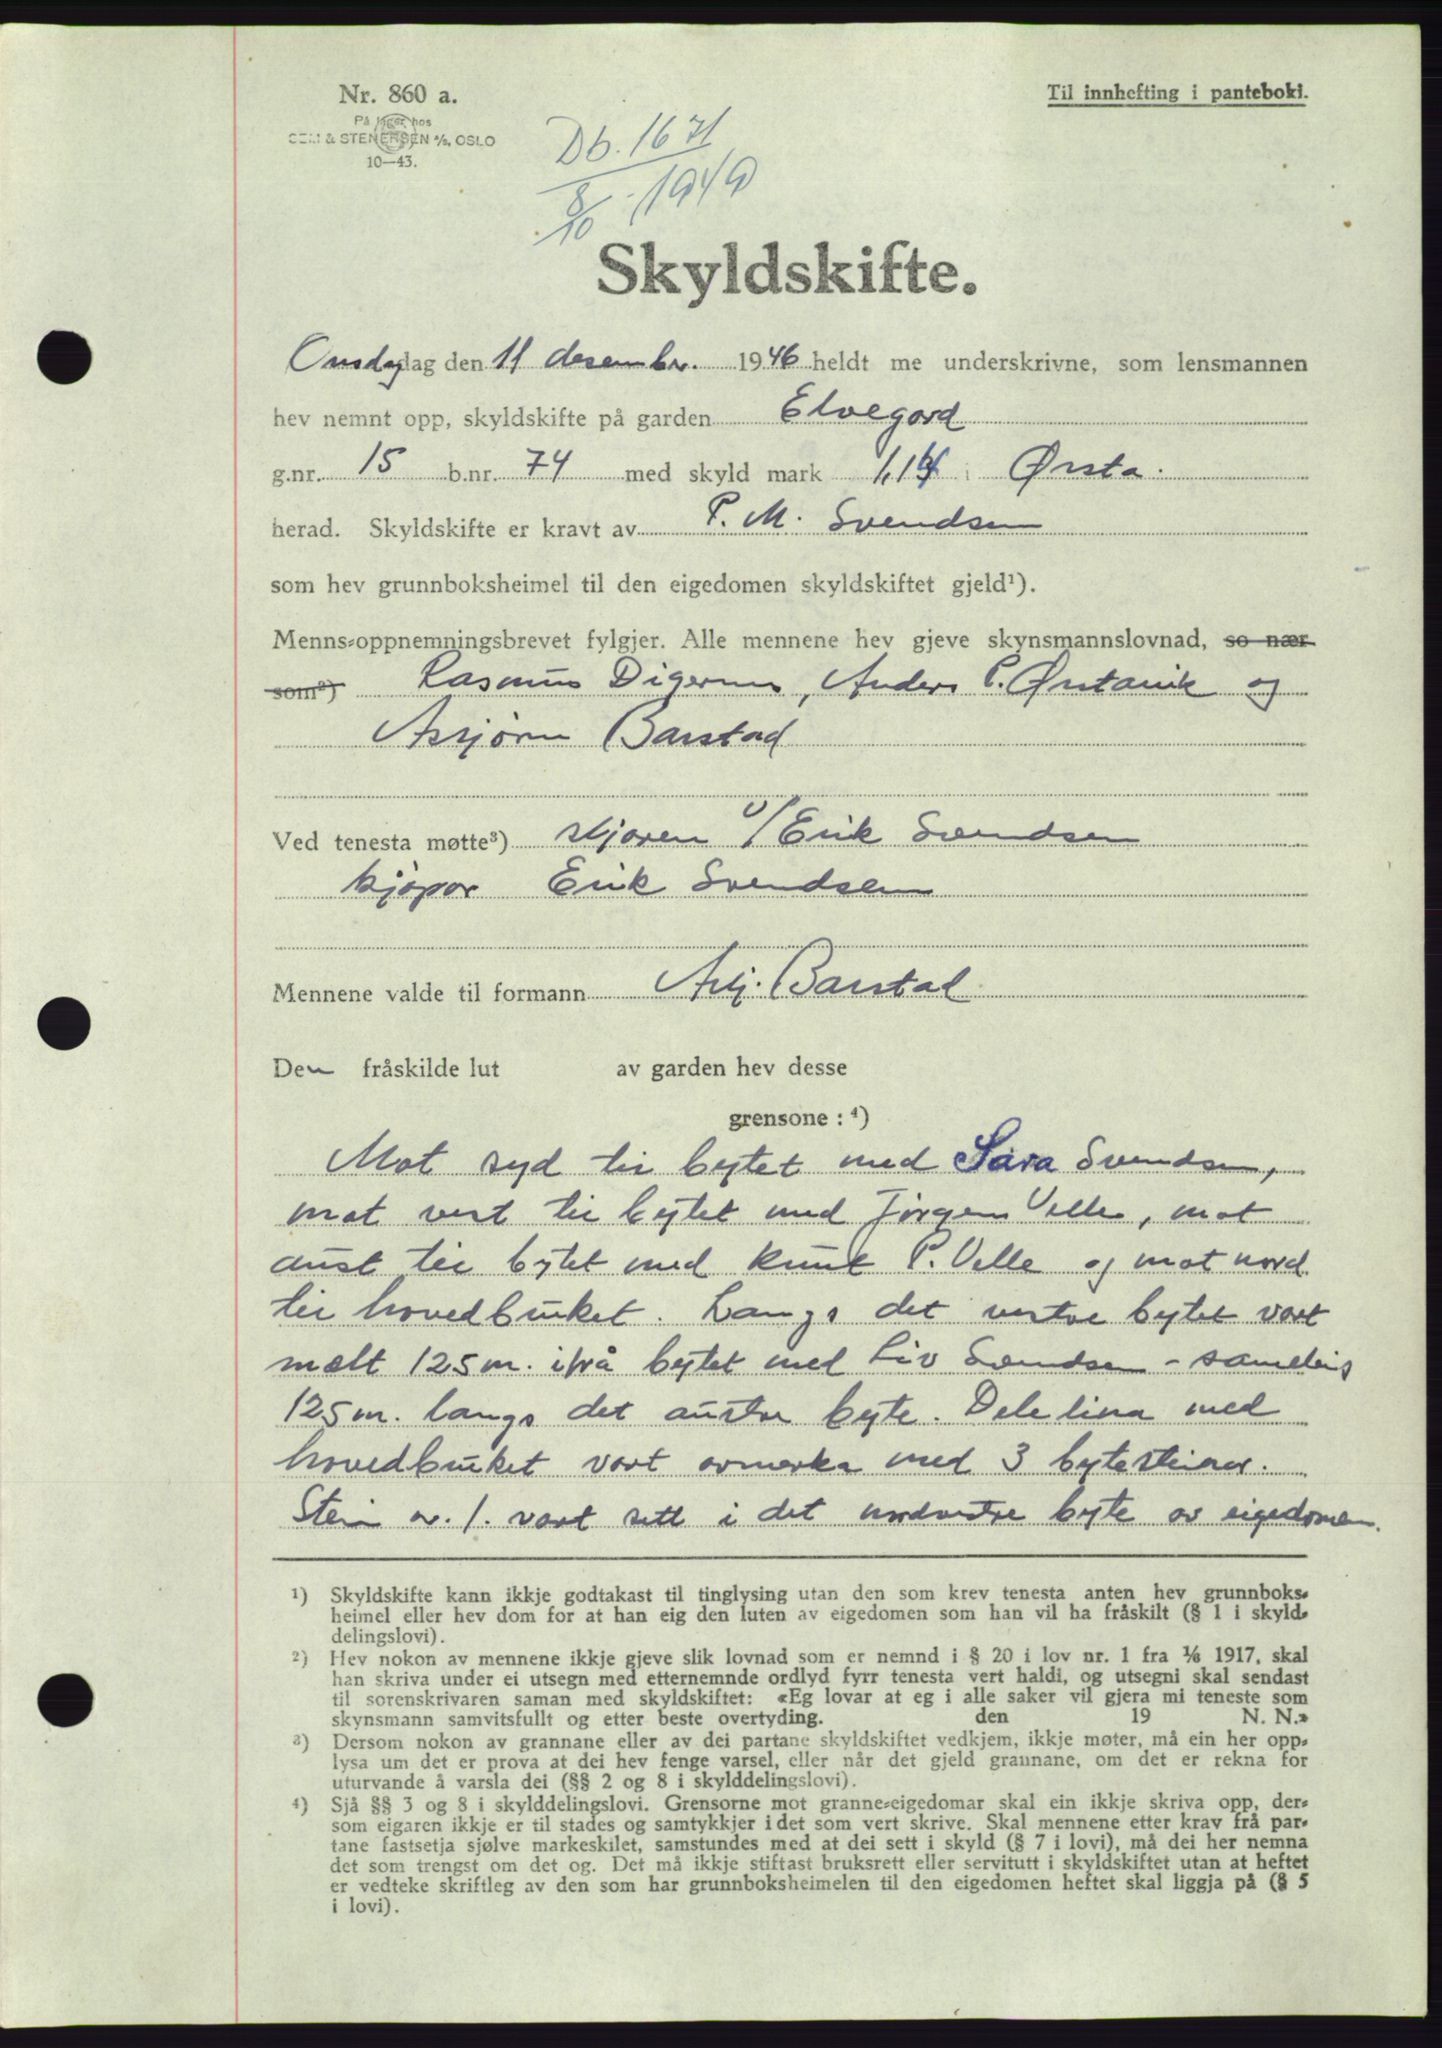 Nr. 860 a.
På lager hos
SEM & STENERSEN A/S, OSLO
10—43.
Til innhefting i panteboki.
Db. 1671
8/10 . 1949
Skyldskifte.
Onsdag dag den 11 desembr. 1946 heldt me underskrivne, som lensmannen
hev nemnt opp, skyldskifte på garden Elvegard
g.nr. 15 b.nr. 74 med skyld mark i Ørsta.
herad. Skyldskifte er kravt av P. M. Svendsen
som hev grunnboksheimel til den eigedomen skyldskiftet gjeld¹).
Menns-oppnemningsbrevet fylgjer. Alle mennene hev gjeve skynsmannslovnad, so nær
som²) Rasmus Digernes, Anders P. Ørstavik og
Asbjørn Barstad
Ved tenesta møtte³) seljaren v/ Erik Svendsen
kjøpar Erik Svendsen
Mennene valde til formann Asbj. Barstad
Den fråskilde lut av garden hev desse
grensone : ⁴)
Mot syd til bytet med Sara Svendsen,
mot vest til bytet med Jørgen Velle, mot
aust til bytet med Knut P. Velle og mot nord
til hovedbruket. Langs det vestre bytet vart
mælt 125 m. ifrå bytet med Liv Svendsen - sameleis
125 m. langs det austre byte. Delelina med
hovedbruket vart avmerka med 3 bytesteinar.
Stein nr. 1. vart sett i det nordvestre byte av eigedomen.
¹) Skyldskifte kann ikkje godtakast til tinglysing utan den som krev tenesta anten hev grunnboks-
heimel eller hev dom for at han eig den luten av eigedomen som han vil ha fråskilt (§ 1 i skyld-
delingslovi).
²) Hev nokon av mennene ikkje gjeve slik lovnad som er nemnd i § 20 i lov nr. 1 fra 1/6 1917, skal
han skriva under ei utsegn med etternemnde ordlyd fyrr tenesta vert haldi, og utsegni skal sendast
til sorenskrivaren saman med skyldskiftet: «Eg lovar at eg i alle saker vil gjera mi teneste som
skynsmann samvitsfullt og etter beste overtyding. den 19 N. N.»
³) Dersom nokon av grannane eller av dei partane skyldskiftet vedkjem, ikkje møter, må ein her opp-
lysa um det er prova at dei hev fenge varsel, eller når det gjeld grannane, om det er rekna for
uturvande å varsla dei (§§ 2 og 8 i skylddelingslovi).
⁴) Sjå §§ 3 og 8 i skylddelingslovi. Grensorne mot granne-eigedomar skal ein ikkje skriva opp, der-
som eigaren ikkje er til stades og samtykkjer i det som vert skrive. Skal mennene etter krav frå par-
tane fastsetja sjølve markeskilet, samstundes med at dei sett i skyld (§ 7 i lovi), må dei her nemna
det som trengst om det og. Det må ikkje stiftast bruksrett eller servitutt i skyldskiftet utan at heftet
er vedteke skriftleg av den som har grunnboksheimelen til den eigedomen heftet skal liggja på (§ 5
i lovi).